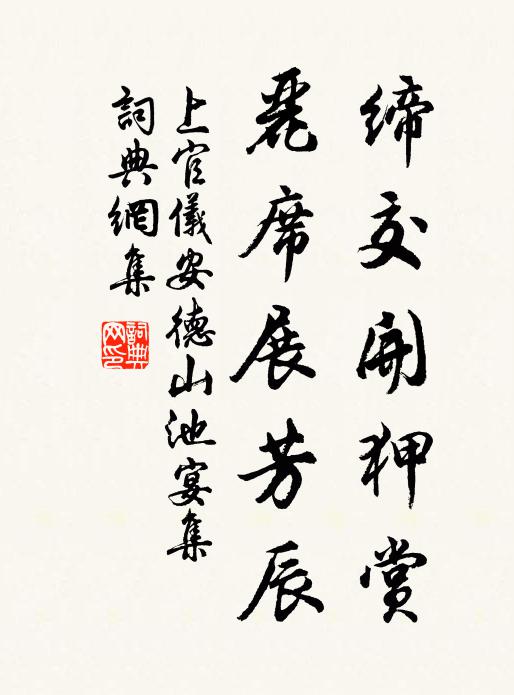 締交開狎賞
麗席展芳辰
上官儀安德山池宴集
詞典網集
詞典网印